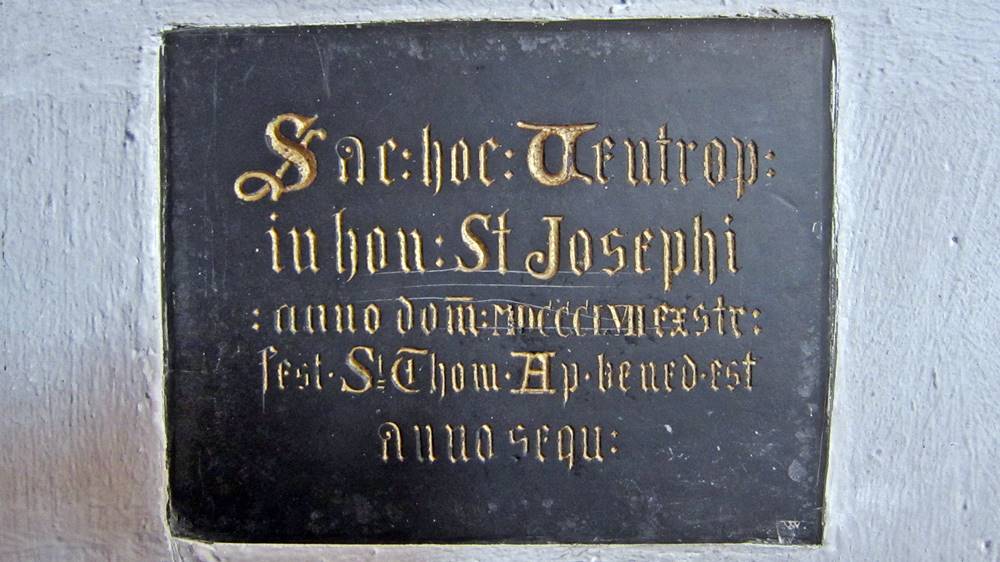 Sac: hoc: Teutrop:
in hon: St Josephi
: anno dom̄: MDCCCLVII exstr:
fest · St. Thom · Ap · bened · est
anno sequ: